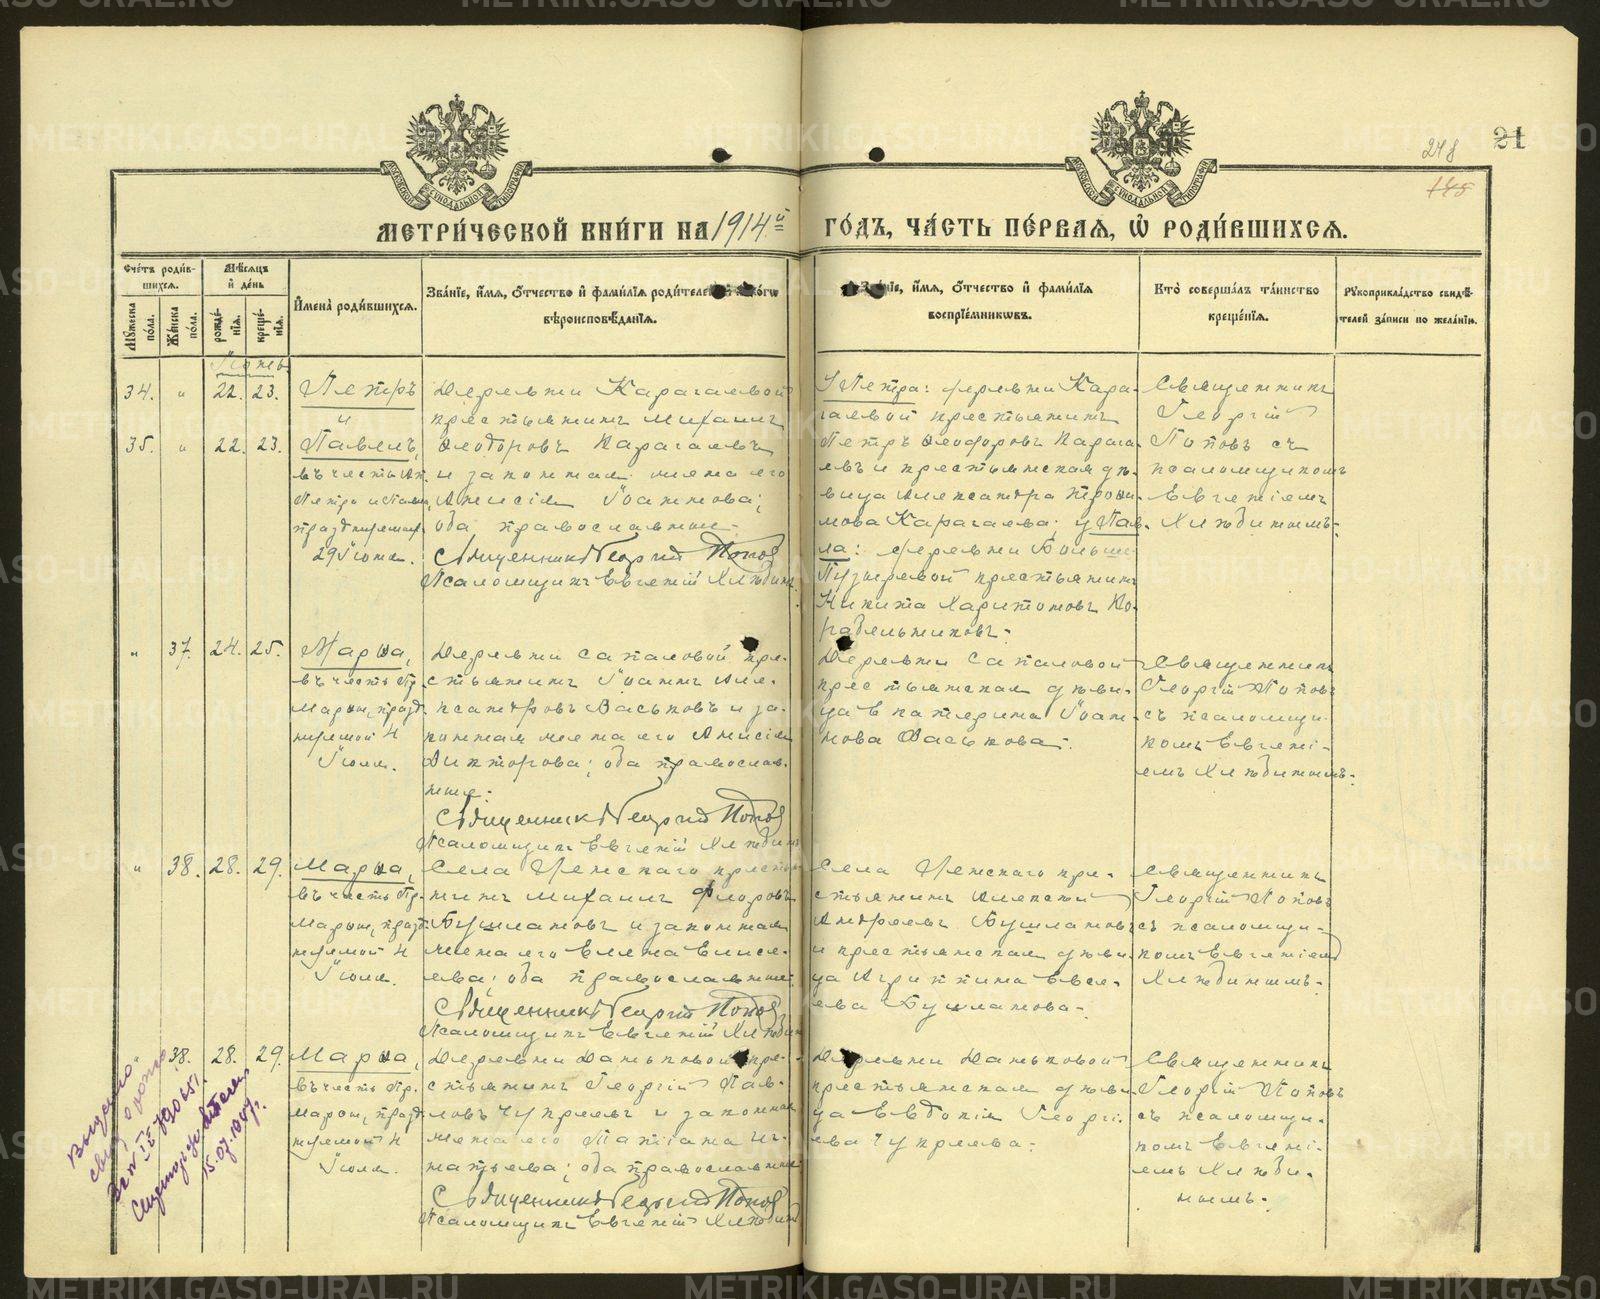 248
21
145
МЕТРИ́ЧЕСКОЙ КНИ́ГИ НА 1914й ГО́ДЪ, ЧА́СТЬ ПЕ́РВАЯ, Ѡ҆ РОДИ́ВШИХСЯ.
Сче́тъ роди́в-
шихся.
Мꙋ́жеска
по́ла.
Же́нска
по́ла.
Мѣ́сяцъ
и҆ де́нь
рожде́-
нїѧ.
креще́-
нїѧ.
И҆мена̀ роди́вшихся.
Зва́нїе, и҆́мѧ, ѻ҆́тчество и҆ фами́лїѧ роди́телей
вѣроисповѣ́данїѧ.
и҆́мѧ, ѻ҆́тчество и҆ фами́лїѧ
воспрїе́мникѡвъ.
Кто̀ соверша́лъ та́инство
креще́нїѧ.
Рꙋкоприкла́дство свидѣ́-
телей за́писи по жела́нїю.
Іюнь
34. " 22. 23. Петръ
и
35. " 22. 23. Павелъ,
въ честь Ап.
Петра и Павла,
празднуемых
29 Іюня.
Деревни Карагаевой
крестьянинъ Михаилъ
Ѳеодоровъ Карагаевъ
и законная жена его
Анисія Іоаннова;
оба православные.
Священникъ Георгій Поповъ
Псаломщикъ Евгеній Хлѣбинъ
У Петра: деревни Кара-
гаевой крестьянинъ
Петръ Ѳеодоровъ Карага-
евъ и крестьянская дѣ-
вица Александра Трофи-
мова Карагаева; у Пав-
ла: деревни Больше-
Пузыревой крестьянинъ
Никита Харитоновъ Ко-
рабельниковъ.
Священникъ
Георгій
Поповъ съ
псаломщикомъ
Евгеніемъ
Хлѣбинымъ.
" 37. 24. 25. Марѳа,
въ честь Пр.
Марѳы, празд-
нуемой 4
Іюля.
Деревни Сапаловой кре-
стьянинъ Іоаннъ Але-
ксандровъ Васьковъ и за-
конная жена его Анисія
Викторова; оба православ-
ные.
Священникъ Георгій Поповъ
Псаломщикъ Евгеній Хлѣбинъ
Деревни Сапаловой
крестьянская дѣви-
ца Екатерина Іоан-
нова Васькова.
Священникъ
Георгій Поповъ
съ псаломщи-
комъ Евгені-
емъ Хлѣбинымъ.
" 38. 28. 29. Марѳа,
въ честь Пр.
Марѳы, празд-
нуемой 4
Іюля.
Села крестья-
нинъ Михаилъ Флоровъ
Бушлановъ и законная
жена его Елена Елисе-
ева; оба православные.
Священникъ Георгій Поповъ
Псаломщикъ Евгеній Хлѣбинъ
Села кре-
стьянинъ Алексій
Андреевъ Бушлановъ
и крестьянская дѣви-
ца Агриппина Евсе-
ева Бушланова.
Священникъ
Георгій Поповъ
съ псаломщи-
комъ Евгеніемъ
Хлѣбинымъ.
38. 28. 29. Марѳа,
въ честь Пр.
Марѳы, празд-
нуемой 4
Іюля.
Деревни Даньковой кре-
стьянинъ Георгій Пав-
ловъ Чупреевъ и законная
жена его Татіана Иг-
натьева; оба православные.
Священникъ Георгій Поповъ
Псаломщикъ Евгеній Хлѣбинъ
Деревни Даньковой
крестьянская дѣви-
ца Евдокія Георгі-
ева Чупреева.
Священникъ
Георгій Поповъ
съ псаломщи-
комъ Евгені-
емъ Хлѣби-
нымъ.
Выдано
свид.
15.07.1949г.
METRIKI.GASO-URAL.RU